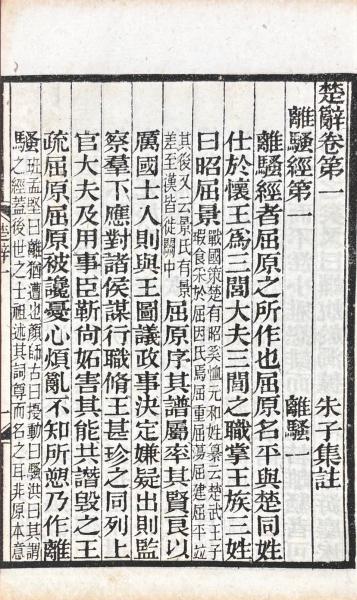 楚辭卷第一　朱子集註
離騷經第一　離騷一
離騷經者屈原之所作也屈原名平與楚同姓
仕於懷王爲三閭大夫三閭之職掌王族三姓
曰昭屈景戰國策楚有昭奚恤元和姓纂云楚武王子瑕食采於屈因氏焉屈重屈蕩屈建屈平竝
其後又云景氏有景差至漢皆徙關中屈原序其譜屬率其賢良以
厲國士入則與王圖議政事決定嫌疑出則監
察羣下應對諸侯謀行職脩王甚珍之同列上
官大夫及用事臣靳尚妬害其能共譖毀之王
疏屈原屈原被讒憂心煩亂不知所愬乃作離
騷班孟堅曰離猶遭也顏師古曰擾動曰騷洪曰其謂之經蓋後世之士祖述其詞尊而名之耳非原本意